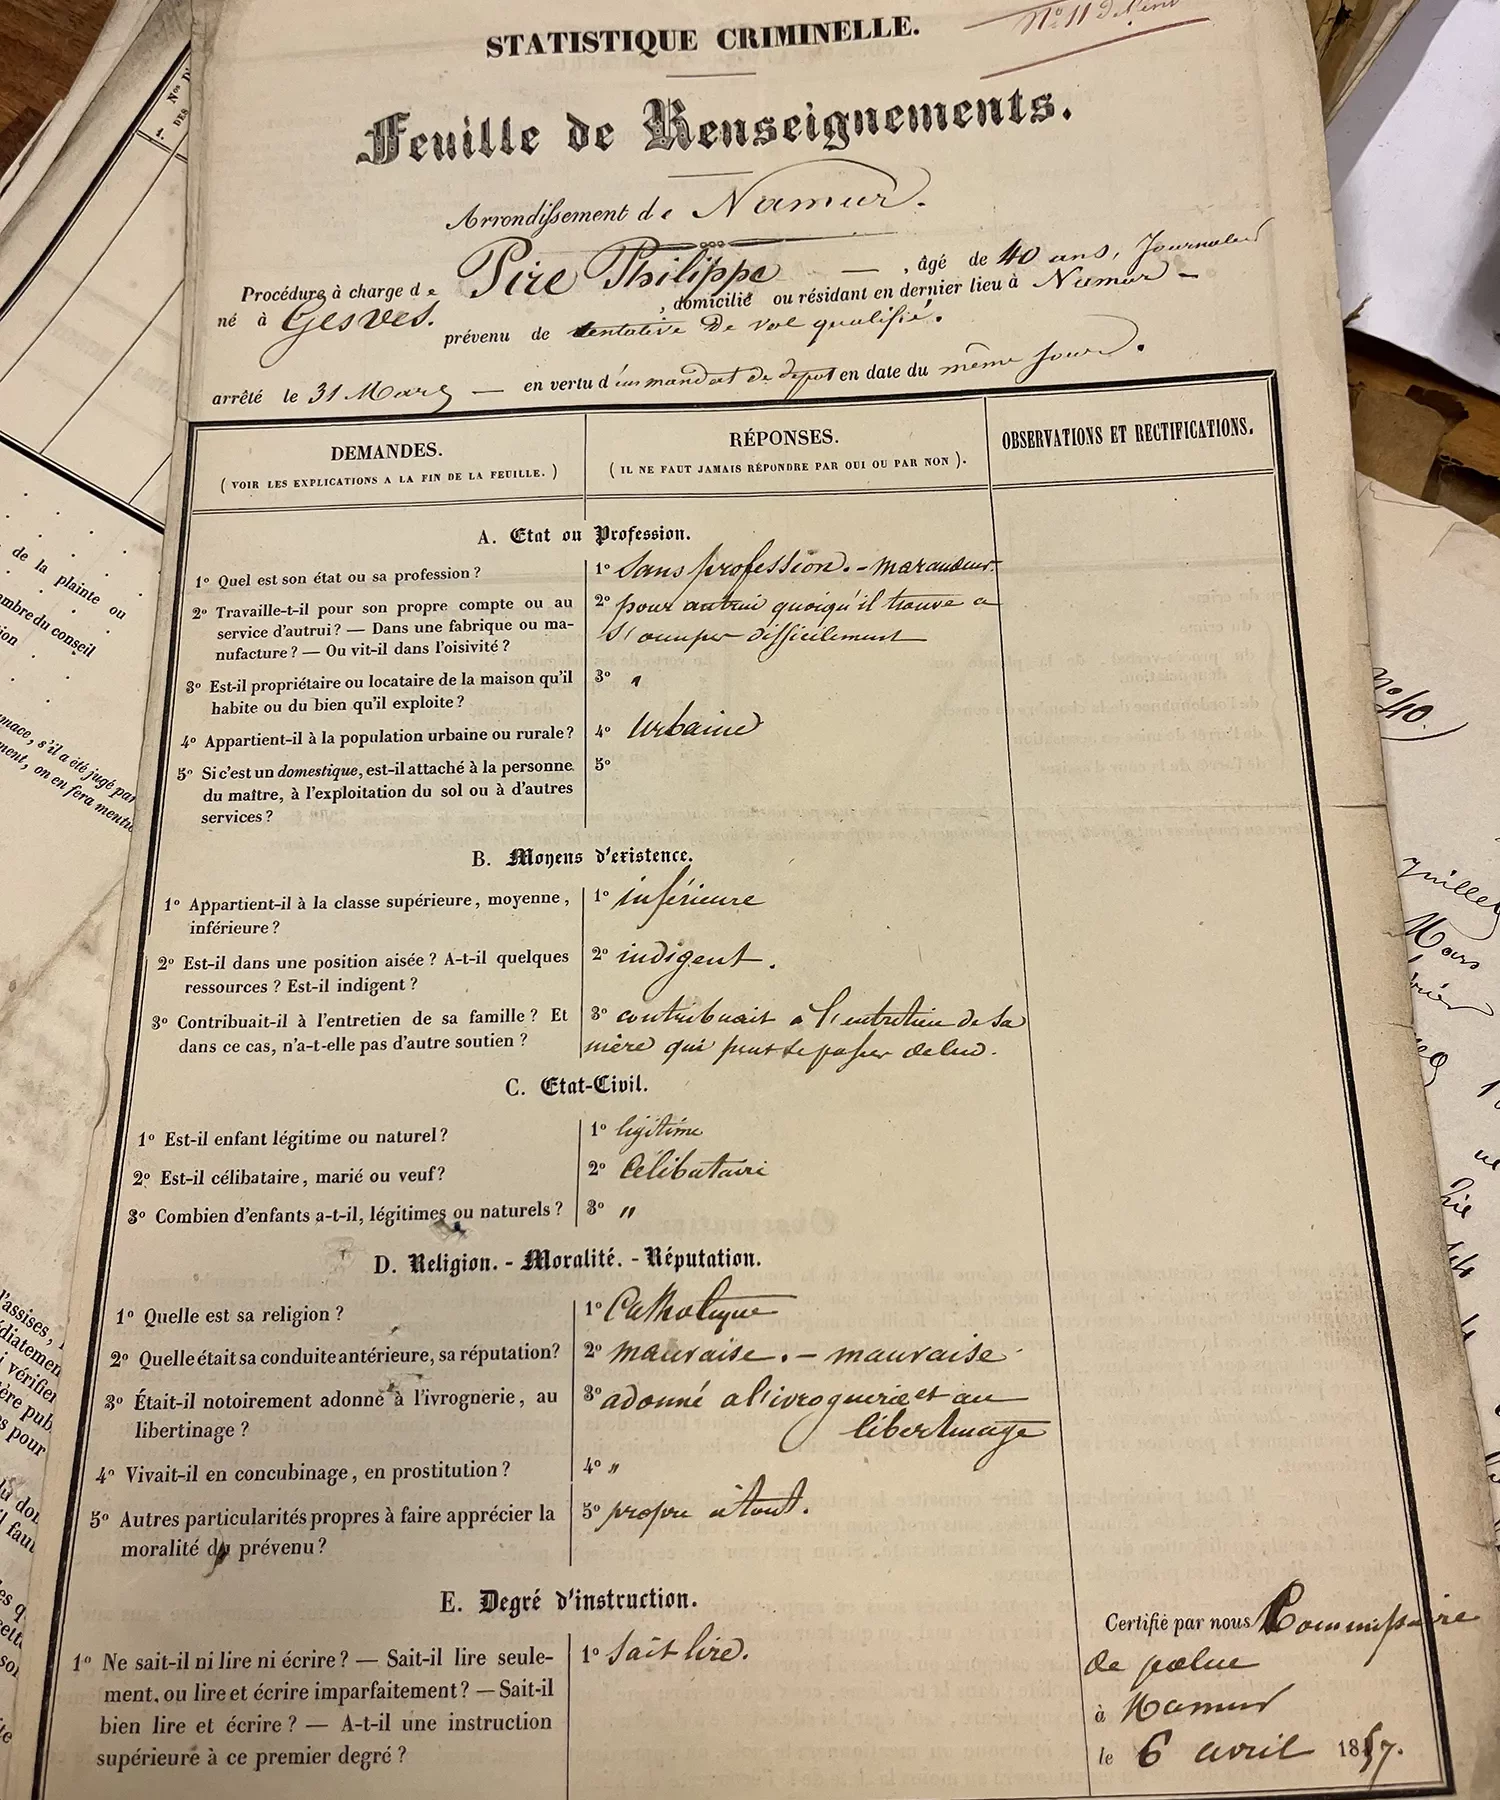 STATISTIQUE CRIMINELLE.
Nº 11
Feuille de Renseignements.
Arrondissement de Namur.
Procédure à charge de Pire Philippe — , âgé de 40 ans, Journalier
né à Gesves. , domicilié ou résidant en dernier lieu à Namur —
prévenu de tentative de vol qualifié.
arrêté le 31 Mars — en vertu d'un mandat de depot en date du même jour.
DEMANDES.
(VOIR LES EXPLICATIONS A LA FIN DE LA FEUILLE.)
RÉPONSES.
(IL NE FAUT JAMAIS RÉPONDRE PAR OUI OU PAR NON).
OBSERVATIONS ET RECTIFICATIONS.
A. Etat ou Profession.
1º Quel est son état ou sa profession?
1º Sans profession. - maraudeur.
2º Travaille-t-il pour son propre compte ou au
service d'autrui? — Dans une fabrique ou ma-
nufacture? — Ou vit-il dans l'oisivité?
2º pour autrui quoiqu'il trouve a
s'occuper difficilement
3º Est-il propriétaire ou locataire de la maison qu'il
habite ou du bien qu'il exploite?
3º "
4º Appartient-il à la population urbaine ou rurale?
4º Urbaine
5º Si c'est un domestique, est-il attaché à la personne
du maître, à l'exploitation du sol ou à d'autres
services?
5º
B. Moyens d'existence.
1º Appartient-il à la classe supérieure, moyenne,
inférieure?
1º inférieure
2º Est-il dans une position aisée? A-t-il quelques
ressources? Est-il indigent?
2º indigent.
3º Contribuait-il à l'entretien de sa famille? Et
dans ce cas, n'a-t-elle pas d'autre soutien?
3º contribuait à l'entretien de sa
mère qui peut se passer de lui.
C. Etat-Civil.
1º Est-il enfant légitime ou naturel?
1º légitime
2º Est-il célibataire, marié ou veuf?
2º Célibataire
3º Combien d'enfants a-t-il, légitimes ou naturels?
3º "
D. Religion. - Moralité. - Réputation.
1º Quelle est sa religion?
1º Catholique
2º Quelle était sa conduite antérieure, sa réputation?
2º mauvaise. - mauvaise
3º Était-il notoirement adonné à l'ivrognerie, au
libertinage?
3º adonné a l'ivrognerie et au
libertinage
4º Vivait-il en concubinage, en prostitution?
4º "
5º Autres particularités propres à faire apprécier la
moralité du prévenu?
5º propre à tout.
E. Degré d'instruction.
1º Ne sait-il ni lire ni écrire? — Sait-il lire seule-
ment, ou lire et écrire imparfaitement? — Sait-il
bien lire et écrire? — A-t-il une instruction
supérieure à ce premier degré?
1º Sait lire.
Certifié par nous Commissaire
de police
à Namur
le 6 avril 1857.
de la plainte ou
mbre du conseil
mace, s'il a été jugé par
ment, on en fera mention
Nº 40.
Juillet
Mars